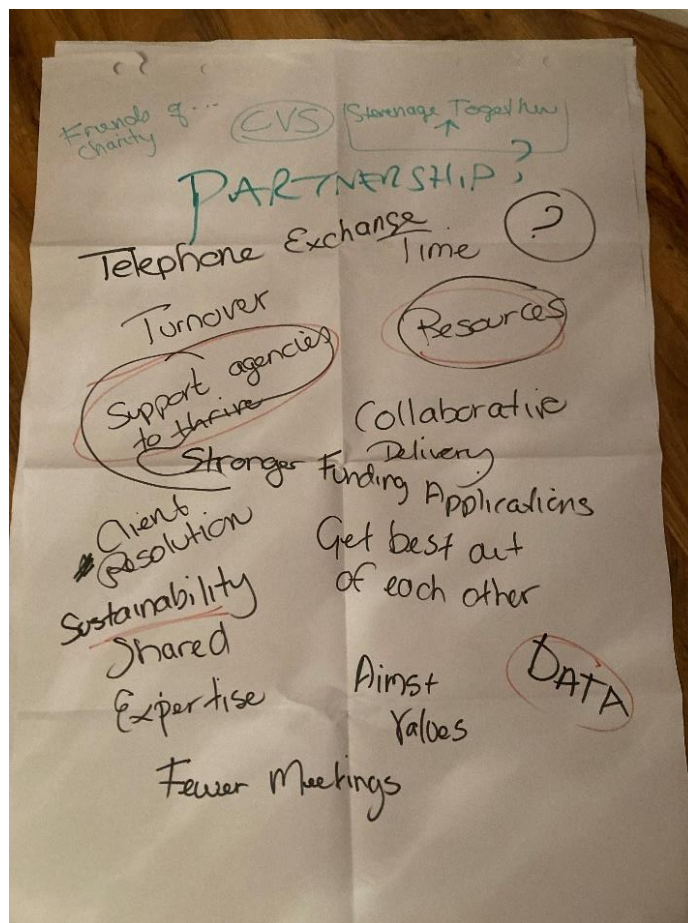 Friends of...
charity
CVS
Stevenage Together
PARTNERSHIP?
Telephone Exchange
Time
?
Turnover
Resources
Support agencies
to thrive
Collaborative
Delivery
Stronger Funding Applications
Client
Resolution
Get best out
of each other
Sustainability
Shared
Expertise
Aims+
Values
DATA
Fewer Meetings